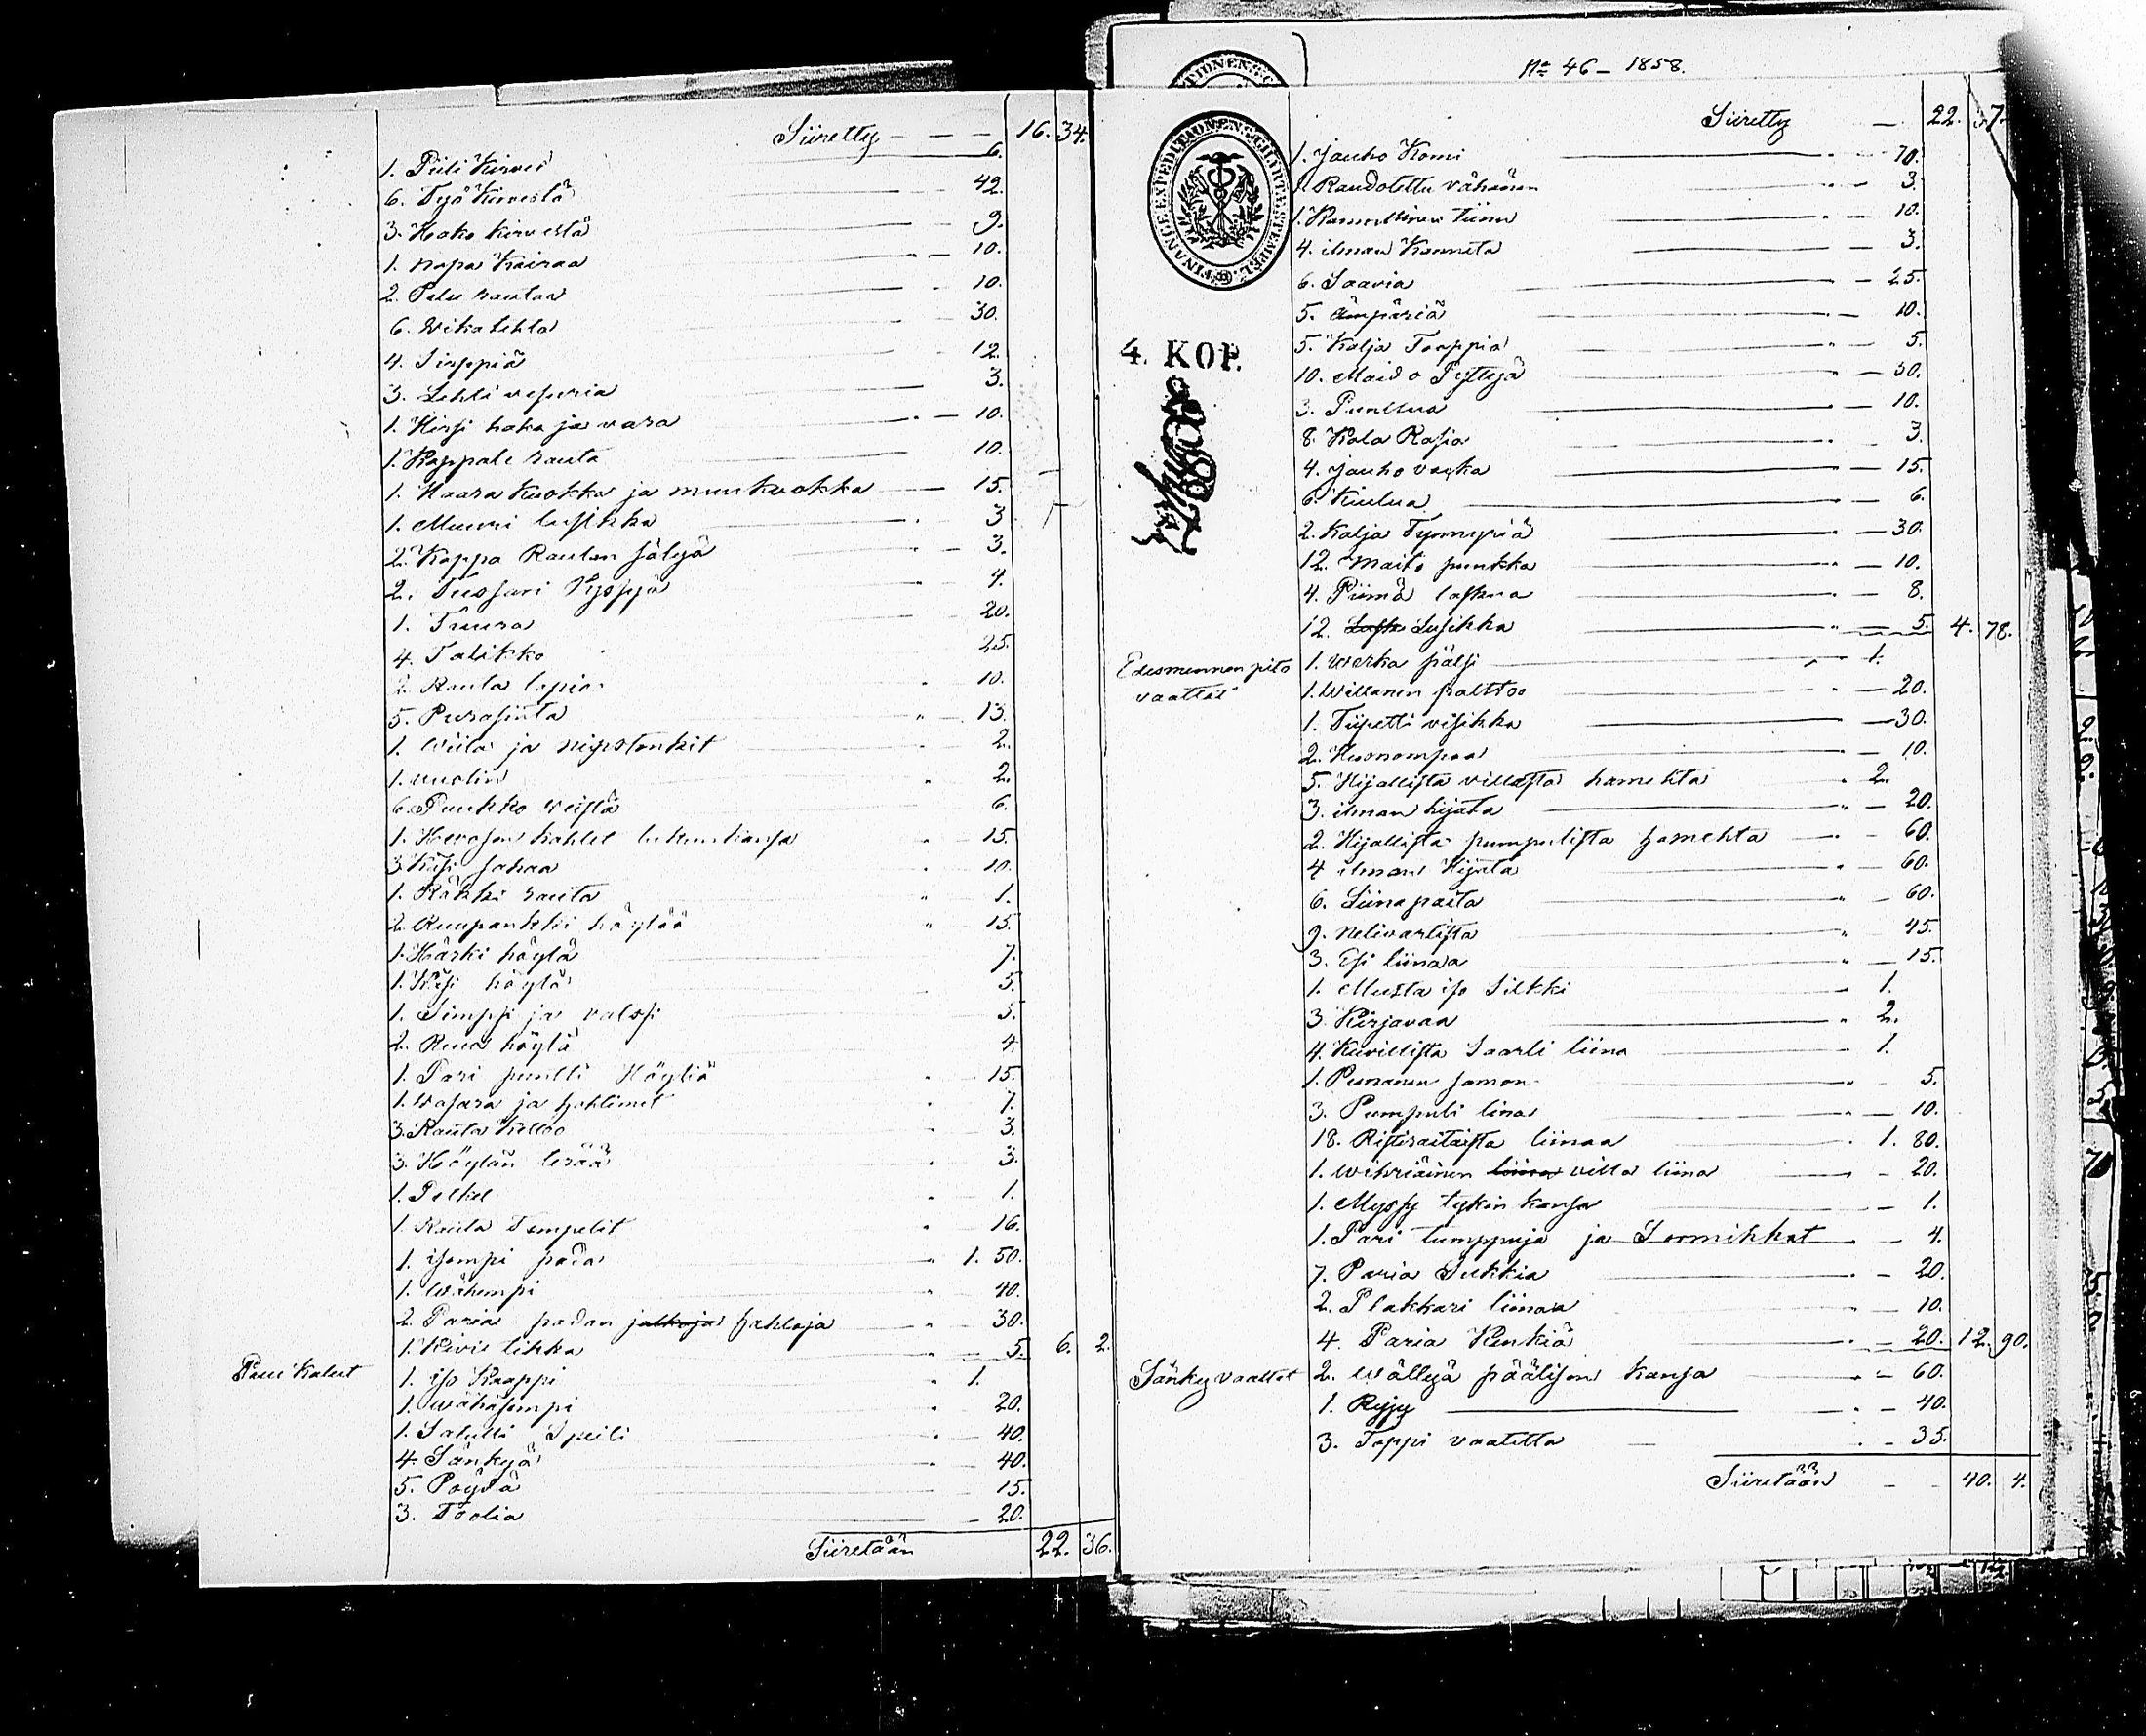 Siiretty - - - 16. 34.
1. Piili Kirves 6.
6. Työ Kirvestä 42.
3. Hako kirvestä 9.
1. Napa Kairaa 10.
2. rautaa 10.
6. Wikatehta 30.
4. Sirppiä 12.
3. Lehti vesuria 3.
1. Hirsi haka ja vara 10.
1. Kappale rauta 10.
1. Haara Kuokka ja muu kuokka 15.
1. Muuri lusikka 3
2. Kappa Rautan 3.
2. 4.
1. Tuura 20.
4. Talikko 25.
2. Rauta lapio 10.
5. Purasinta 13.
1. Wiila ja 2.
1. vuolin 2.
6. Puukko veistä 6.
1. Hevosen kahlet lukunkansa 15.
3 Käsi sahaa 10.
1. rauta 1.
2. Ruupankki höylää 15.
1. Härki höylä 7.
1. Käsi höylä 5.
1. Simpsi ja valssi 5.
2. Ruu höylä 4.
1. Pari puntti Höyliä 15.
1. Vasara ja hohtimet 7.
3. Rauta Kelloo 3.
3. Höylän terää 3.
1. 1.
1. Rauta Tempelit 16.
1. isompi pata 1. 50.
1. Wähempi 40.
2. Paria padan jalkoja hahloja 30.
1. Kivi tikka 5. 6. 2.
Puu Kalut 1. iso Kaappi 1.
1. Wähäsempi 20.
1. Speili 40.
4. Sänkyä 40.
5. Pöytä 15.
3. Toolia 20.
Siiretään 22. 36.
No 46 - 1858.
Siiretty 22. 37.
FINANCE EXPEDITIONENS CHARTÆ STEMPEL
4. KOP.
1. Jauho Korni 70.
1. Raudotettu vähänen 3.
1. Kannellinen tiinu 10.
4. ilman Kanneta 3.
6. Saavia 25.
5. ämpäriä 10.
5. Kalja Tooppia 5.
10. Maido Pyttyä 50.
3. Punttua 10.
8. Kala Rasia 3.
4. Jauho vacka 15.
6. Kiulua 6.
2. Kalja Tynnyriä 30.
12. Maito punkka 10.
4. Piimä 8.
12. Lusikka 5. 4. 78.
Edesmennen pito
vaattet
1. Werka pälsi 1.
1. Willanen palttoo 20.
1. Tiipetti 30.
2. Huonompaa 10.
5. Hijallista villasta hamehta 2.
3. ilman hijata 20.
2. Hijallista pumpulista hamehta 60.
4 ilman Hijata 60.
6. Liinapaita 60.
9. Nelivartista 45.
3. Esi liinaa 15.
1. Musta iso Silkki 1.
3. Kirjavaa 2.
4. Kuvillista Saarli liina 1.
1. Punanen samon 5.
3. Pumpuli lina 10.
18. Ristiraitaista liinaa 1. 80.
1. Wihriäinen liina villa liina 20.
1. Myssy tykin kansa 1.
1. Pari tumppuja ja Sormikkat 4.
7. Paria Sukkia 20.
2. Plakkari liinaa 10.
4. Paria Kenkiä 20. 12. 90.
Sänky vaattet 2. Wällyä päälisen kansa 60.
1. Ryjy 40.
3. Toppi vaatetta 35.
Siiretään 40. 4.